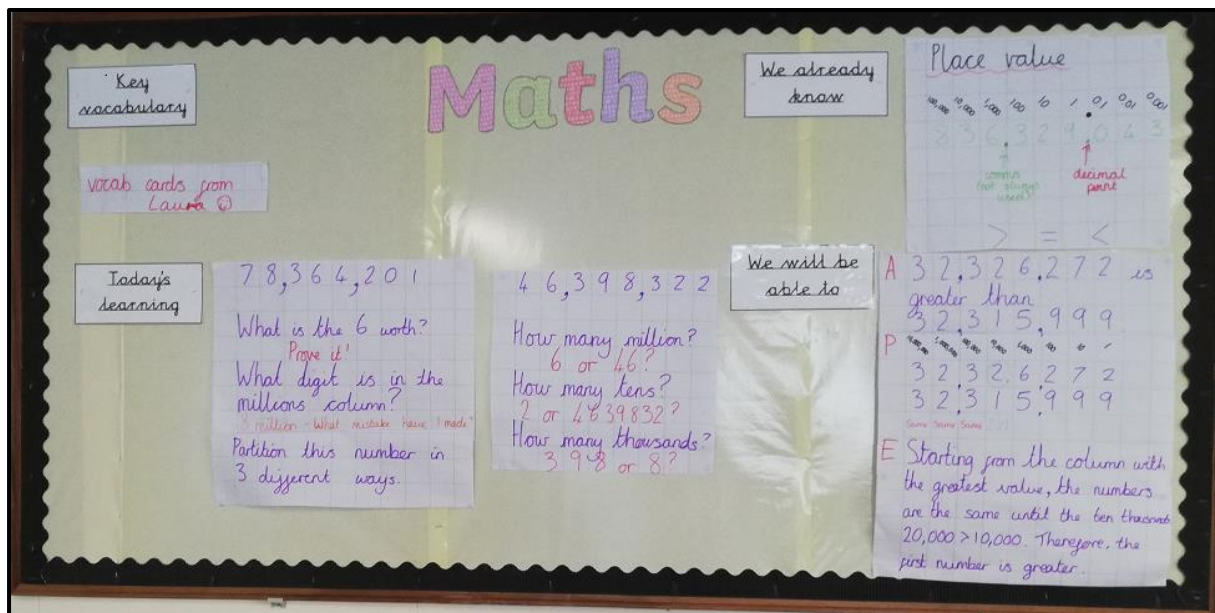 Maths
Key
vocabulary
vocab cards from
Laura
We already
know
Place value
100,000 10,000 1,000 100 10 1 0.1 0.01 0.001
8 3 6,3 2 9.0 4 3
comma
(not always
used)
decimal
point
> = <
Today's
learning
7 8,3 6 4,2 0 1
What is the 6 worth?
Prove it!
What digit is in the
millions column?
3 million - What mistake have I made
Partition this number in
3 different ways.
4 6,3 9 8,3 2 2
How many million?
6 or 46?
How many tens?
2 or 4639832?
How many thousands?
3 9 8 or 8?
We will be
able to
A 3 2,3 2 6,2 7 2 is
greater than
3 2,3 1 5,9 9 9.
P 10,000,000 1,000,000 100,000 10,000 1,000 100 10 1
3 2,3 2 6,2 7 2
3 2,3 1 5,9 9 9
Same Same Same
E Starting from the column with
the greatest value, the numbers
are the same until the ten thousands
20,000 > 10,000. Therefore, the
first number is greater.